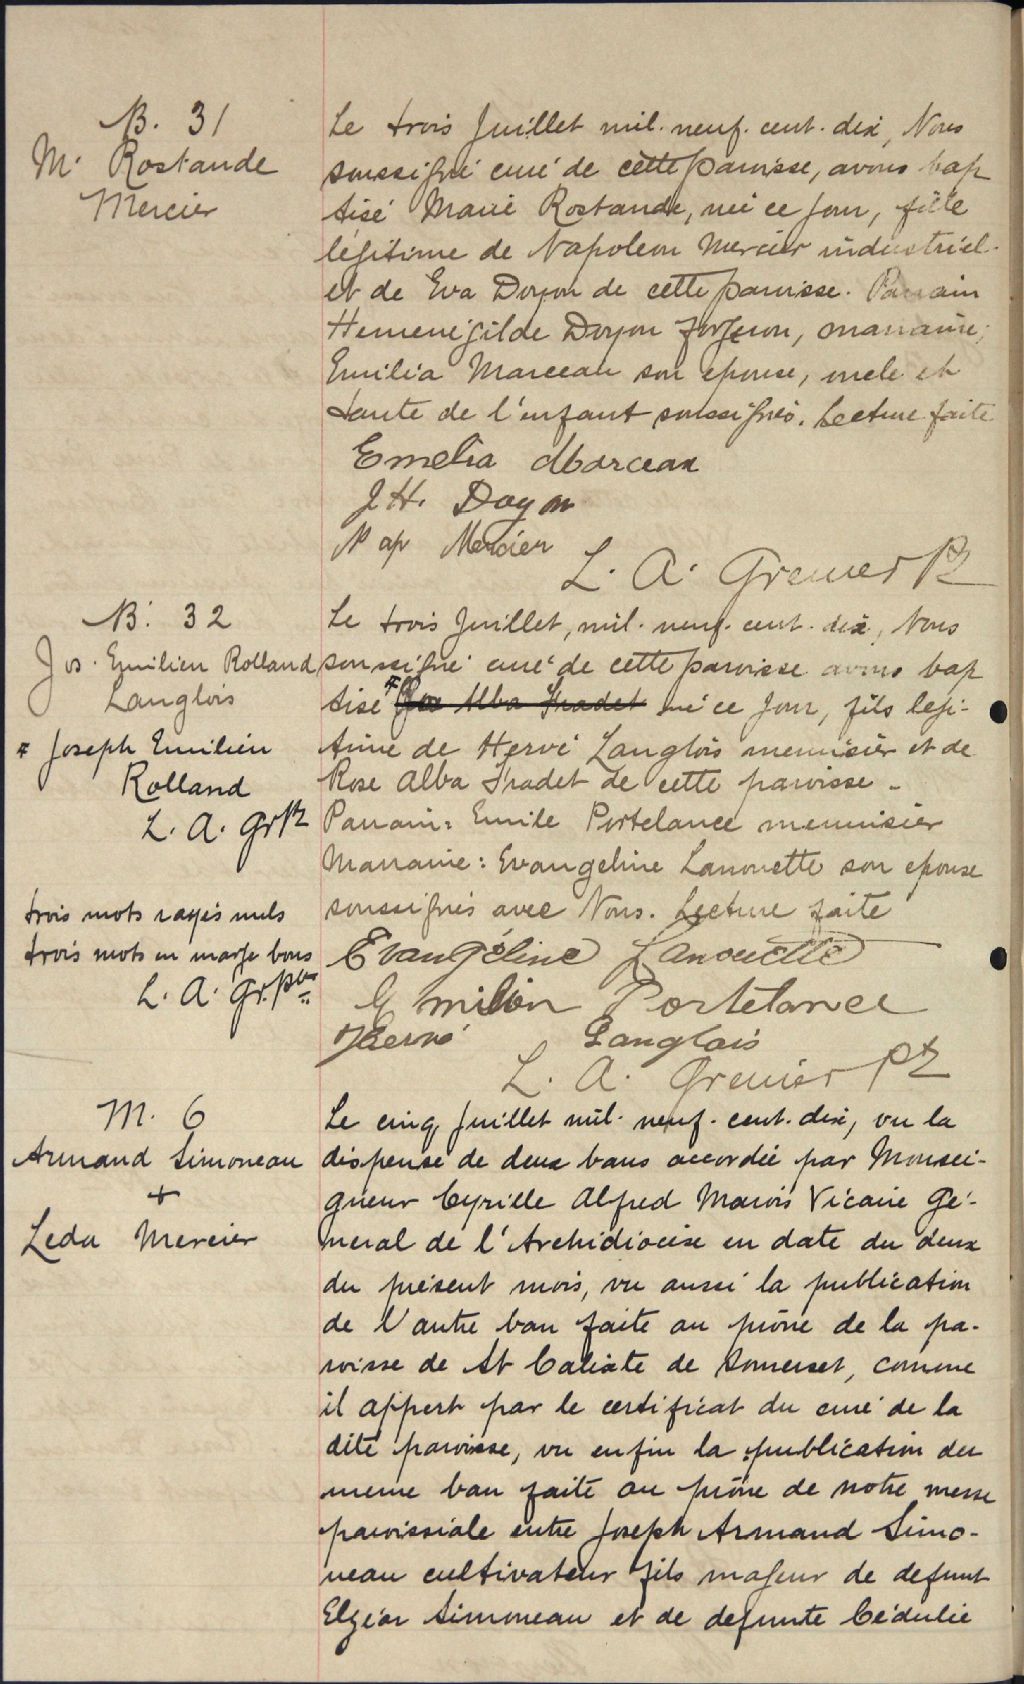 B. 31
M. Rostande
Mercier
Le trois Juillet mil. neuf. cent. dix, Nous
soussigné curé de cette paroisse, avons bap
tisé Marie Rostande, née ce jour, fille
légitime de Napoleon Mercier industriel.
et de Eva Doyon de cette paroisse. Parrain
Hemenégilde Doyon forgeron, marraine;
Emilia Marceau son epouse, oncle et
tante de l'enfant soussignés. Lecture faite
Emelia Marceau
J H. Doyon
Nap Mercier
L. A. Grenier Ptr
B. 32
Jos. Emilien Rolland
Langlois
Le trois Juillet, mil. neuf. cent. dix, Nous
soussigné curé de cette paroisse avons bap
tisé # Rose Alba Fradet né ce jour, fils légi-
time de Hervé Langlois menuisier et de
Rose Alba Fradet de cette paroisse.
Parrain: Emile Portelance menuisier
Marraine: Evangeline Lanouette son epouse
soussignés avec Nous. Lecture faite
# Joseph Emilien
Rolland
L. A. Gr Ptr
trois mots rayés nuls
trois mots en marge bons
L. A. Gr. Ptr
Evangéline Lanouette
Emilien Portelance
Hervé Langlois
L. A. Grenier Ptr
M. 6
Armand Simoneau
+
Leda Mercier
Le cinq Juillet mil. neuf. cent. dix, vu la
dispense de deux bans accordée par Monsei-
gneur Cyrille Alfred Marois Vicaire Gé-
neral de l'Archidiocèse en date du deux
du présent mois, vu aussi la publication
de l'autre ban faite au prône de la pa-
roisse de St Calixte de Somerset, comme
il appert par le certificat du curé de la
dite paroisse, vu enfin la publication du
meme ban faite au prône de notre messe
paroissiale entre Joseph Armand Simo-
neau cultivateur fils majeur de defunt
Elzéar Simoneau et de defunte Cédulie